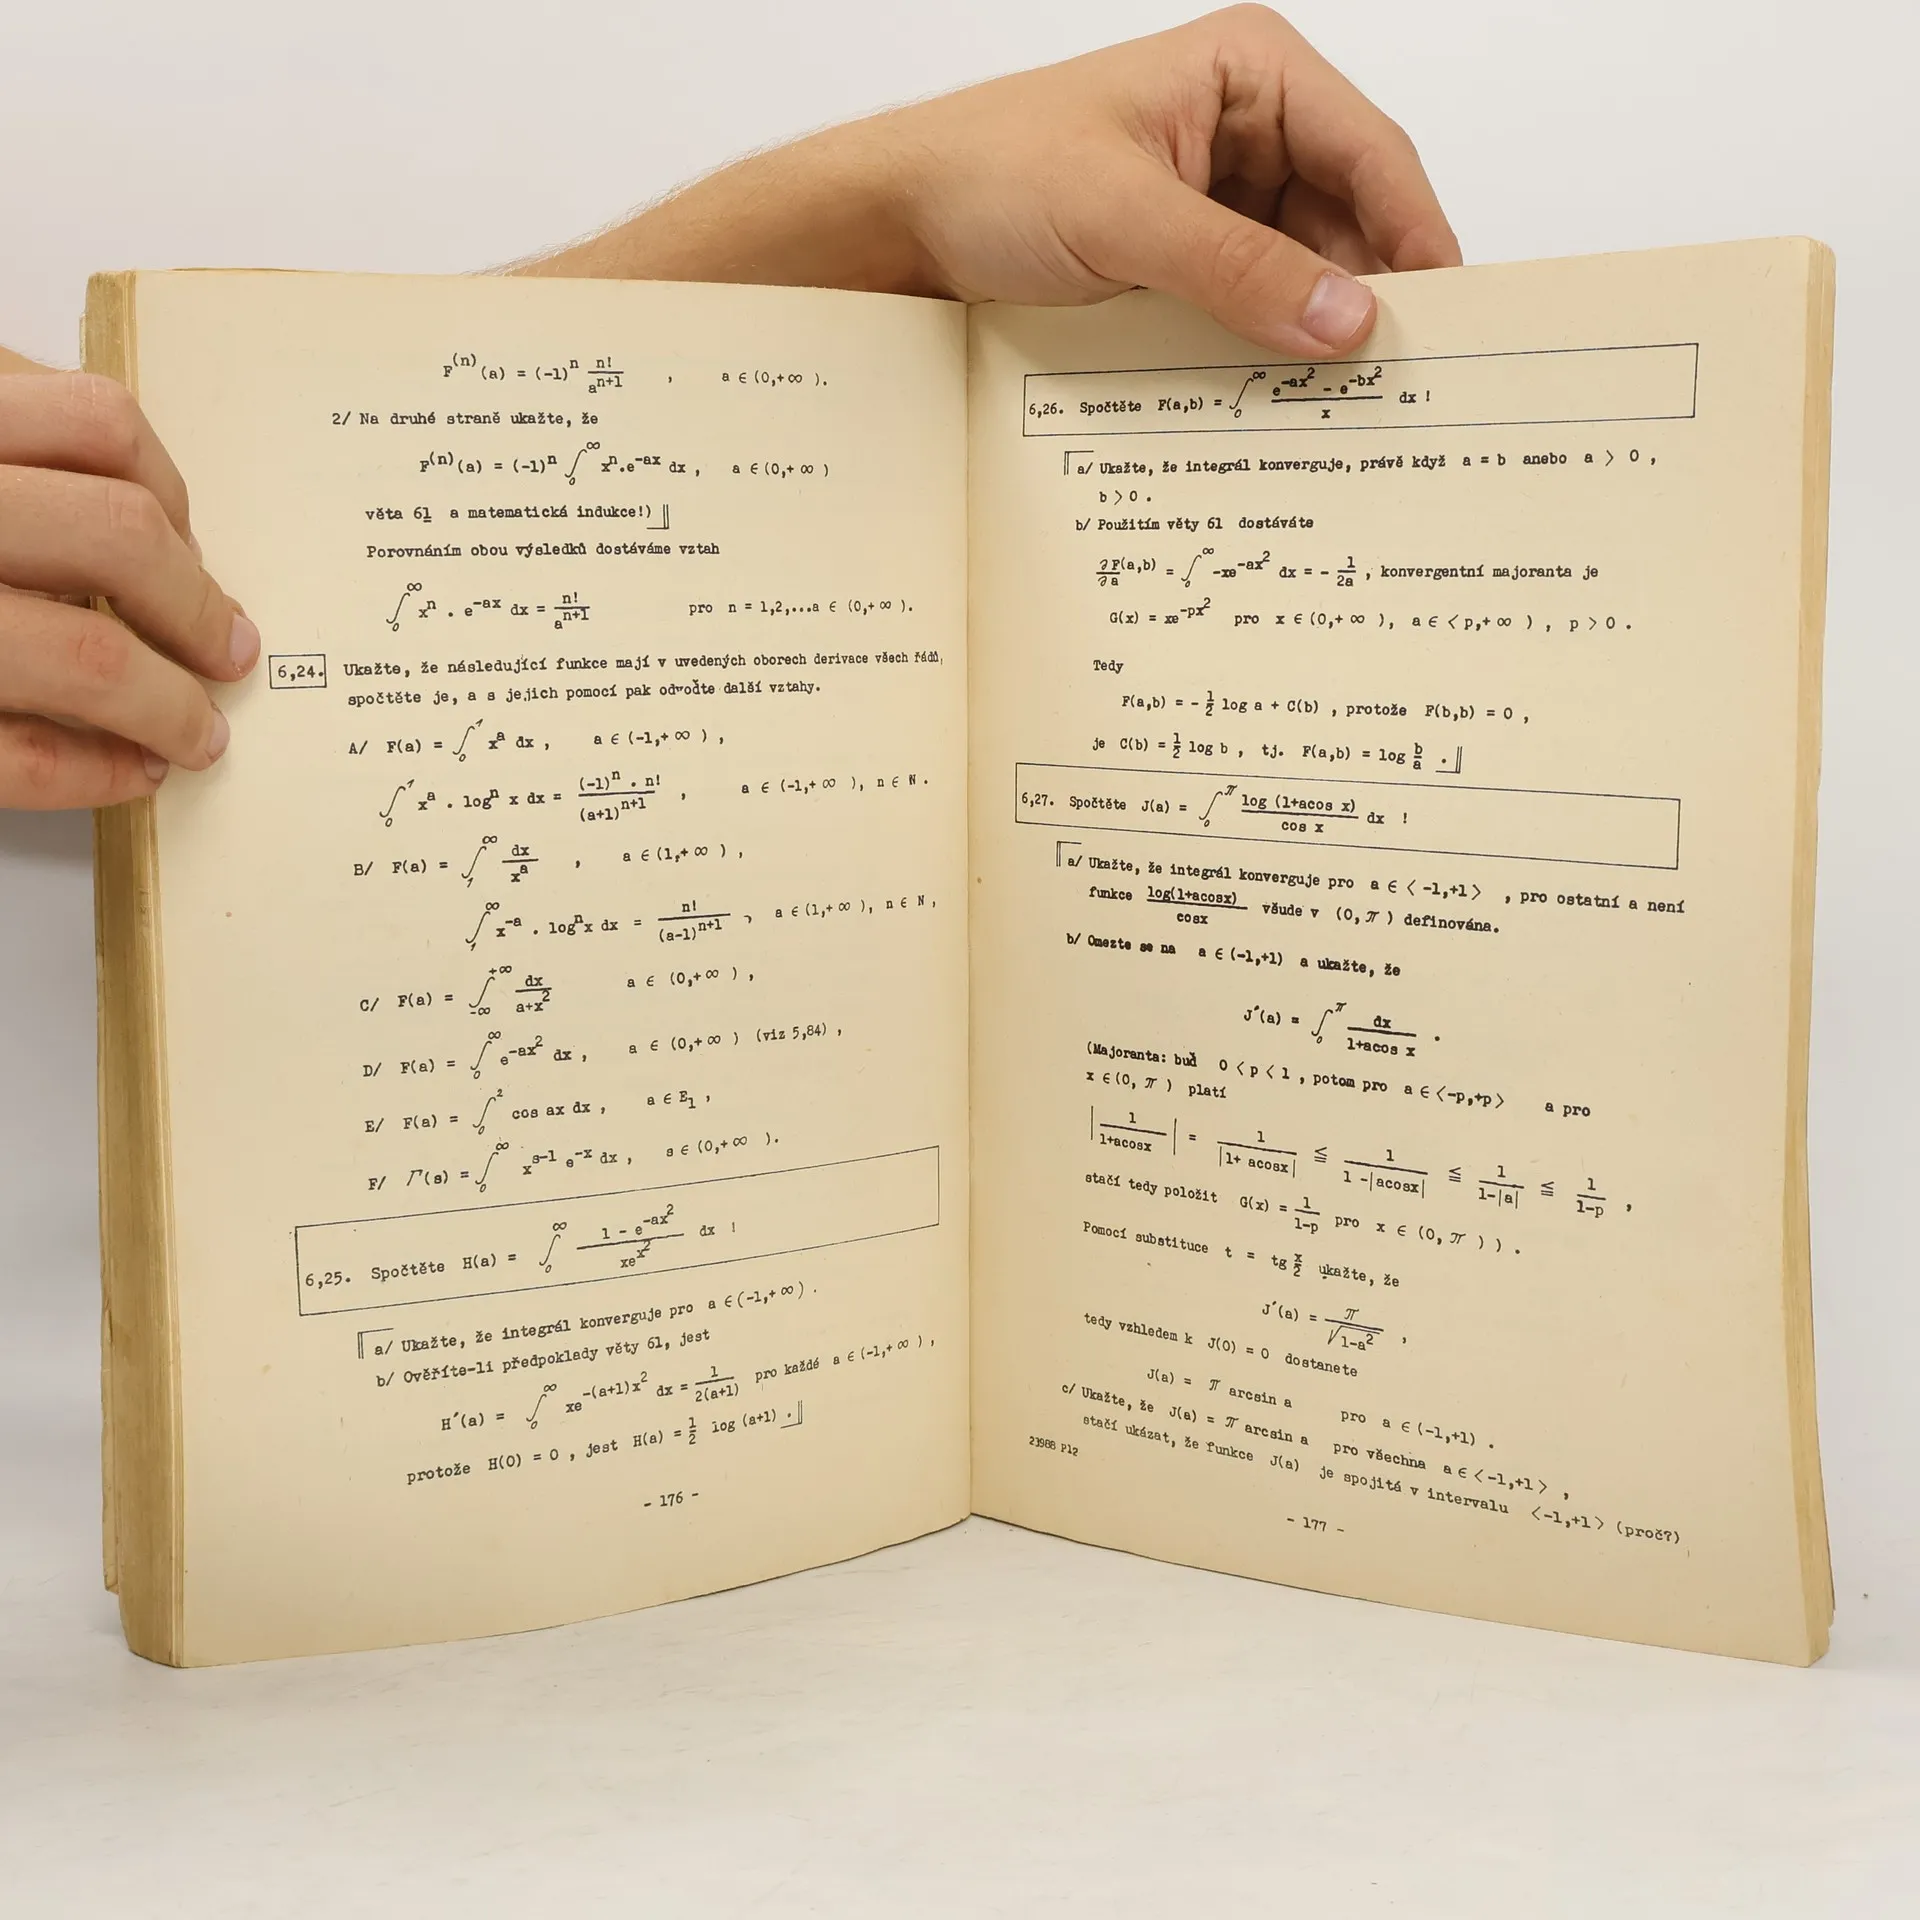 F^(n)(a) = (-1)^n n!/a^(n+1) , a ∈ (0,+∞ ).
2/ Na druhé straně ukažte, že
F^(n)(a) = (-1)^n ∫_0^∞ x^n.e^(-ax) dx , a ∈ (0,+ ∞ )
věta 61 a matematická indukce!)
Porovnáním obou výsledků dostáváme vztah
∫_0^∞ x^n . e^(-ax) dx = n!/a^(n+1) pro n = 1,2,...a ∈ (0,+∞ ).
6,24. Ukažte, že následující funkce mají v uvedených oborech derivace všech řádů,
spočtěte je, a s jejich pomocí pak odvoďte další vztahy.
A/ F(a) = ∫_0^1 x^a dx , a ∈ (-1,+ ∞ ) ,
∫_0^1 x^a . log^n x dx = (-1)^n . n!/(a+1)^(n+1) , a ∈ (-1,+ ∞ ), n ∈ N .
B/ F(a) = ∫_1^∞ dx/x^a , a ∈ (1,+∞ ) ,
∫_1^∞ x^(-a) . log^n x dx = n!/(a-1)^(n+1) , a ∈ (1,+∞ ), n ∈ N ,
C/ F(a) = ∫_(-∞)^(+∞) dx/(a+x^2) a ∈ (0,+∞ ) ,
D/ F(a) = ∫_0^∞ e^(-ax^2) dx , a ∈ (0,+∞ ) (viz 5,84) ,
E/ F(a) = ∫_0^2 cos ax dx , a ∈ E_1 ,
F/ Γ(s) = ∫_0^∞ x^(s-1) e^(-x) dx , s ∈ (0,+∞ ).
6,25. Spočtěte H(a) = ∫_0^∞ (1 - e^(-ax^2))/(xe^(x^2)) dx !
a/ Ukažte, že integrál konverguje pro a ∈ (-1,+∞) .
b/ Ověříte-li předpoklady věty 61, jest
H´(a) = ∫_0^∞ xe^(-(a+1)x^2) dx = 1/(2(a+1)) pro každé a ∈ (-1,+∞ ) ,
protože H(0) = 0 , jest H(a) = 1/2 log (a+1) .
- 176 -
6,26. Spočtěte F(a,b) = ∫_0^∞ (e^(-ax^2) - e^(-bx^2))/x dx !
a/ Ukažte, že integrál konverguje, právě když a = b anebo a > 0 ,
b > 0 .
b/ Použitím věty 61 dostáváte
∂F(a,b)/∂a = ∫_0^∞ -xe^(-ax^2) dx = - 1/(2a) , konvergentní majoranta je
G(x) = xe^(-px^2) pro x ∈ (0,+∞ ), a ∈ < p,+∞ ) , p > 0 .
Tedy
F(a,b) = - 1/2 log a + C(b) , protože F(b,b) = 0 ,
je C(b) = 1/2 log b , tj. F(a,b) = log b/a .
6,27. Spočtěte J(a) = ∫_0^π log (1+acos x)/cos x dx !
a/ Ukažte, že integrál konverguje pro a ∈ < -1,+1> , pro ostatní a není
funkce log(1+acosx)/cosx všude v (0,π ) definována.
b/ Omezte se na a ∈ (-1,+1) a ukažte, že
J´(a) = ∫_0^π dx/(1+acos x) .
(Majoranta: buď 0 < p < 1 , potom pro a ∈ <-p,+p> a pro
x ∈ (0, π ) platí
|1/(1+acosx)| = 1/|1+ acosx| ≦ 1/(1 -|acosx|) ≦ 1/(1-|a|) ≦ 1/(1-p) ,
stačí tedy položit G(x) = 1/(1-p) pro x ∈ (0, π ) ) .
Pomocí substituce t = tg x/2 ukažte, že
J´(a) = π/√(1-a^2) ,
tedy vzhledem k J(0) = 0 dostanete
J(a) = π arcsin a pro a ∈ (-1,+1) .
c/ Ukažte, že J(a) = π arcsin a pro všechna a ∈ < -1,+1> ,
stačí ukázat, že funkce J(a) je spojitá v intervalu <-1,+1> (proč?)
23988 P12
- 177 -